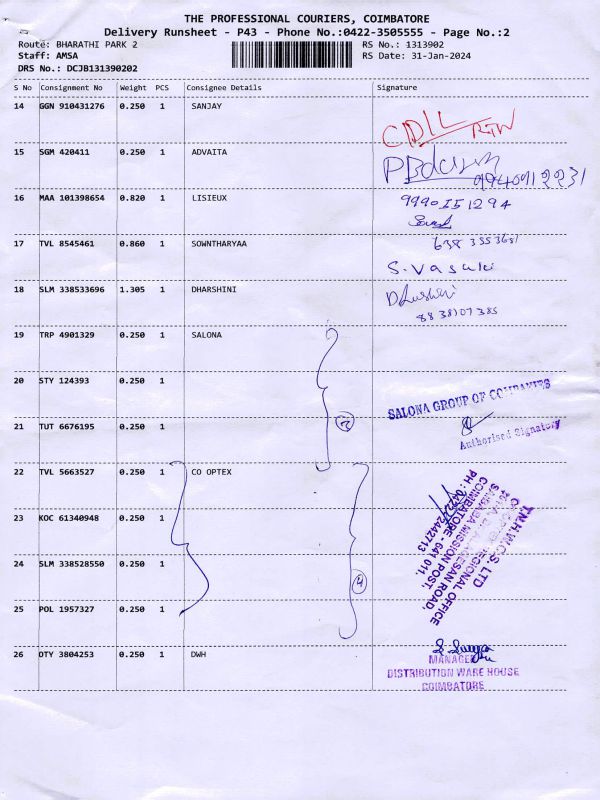 THE PROFESSIONAL COURIERS, COIMBATORE
Delivery Runsheet - P43 - Phone No.:0422-3505555 - Page No.:2
Route: BHARATHI PARK 2 RS No.: 1313902
Staff: AMSA RS Date: 31-Jan-2024
DRS No.: DCJB131390202
S No Consignment No Weight PCS Consignee Details Signature
14 GGN 910431276 0.250 1 SANJAY
CDIL
15 SGM 420411 0.250 1 ADVAITA
9940912231
16 MAA 101398654 0.820 1 LISIEUX 9990151294
17 TVL 8545461 0.860 1 SOWNTHARYAA 638 3353681
S. Vasuki
18 SLM 338533696 1.305 1 DHARSHINI Dharshini
8838107385
19 TRP 4901329 0.250 1 SALONA
20 STY 124393 0.250 1
SALONA GROUP OF COMPANIES
21 TUT 6676195 0.250 1 3
Authorised Signatory
22 TVL 5663527 0.250 1 CO OPTEX
T.N.H.W.C.S. LTD
REGIONAL OFFICE
SAIBABA MISSION POST,
COIMBATORE - 641 011.
PH : 0422-2442713
23 KOC 61340948 0.250 1
24 SLM 338528550 0.250 1 4
25 POL 1957327 0.250 1
26 OTY 3804253 0.250 1 DWH
MANAGER
DISTRIBUTION WARE HOUSE
COIMBATORE